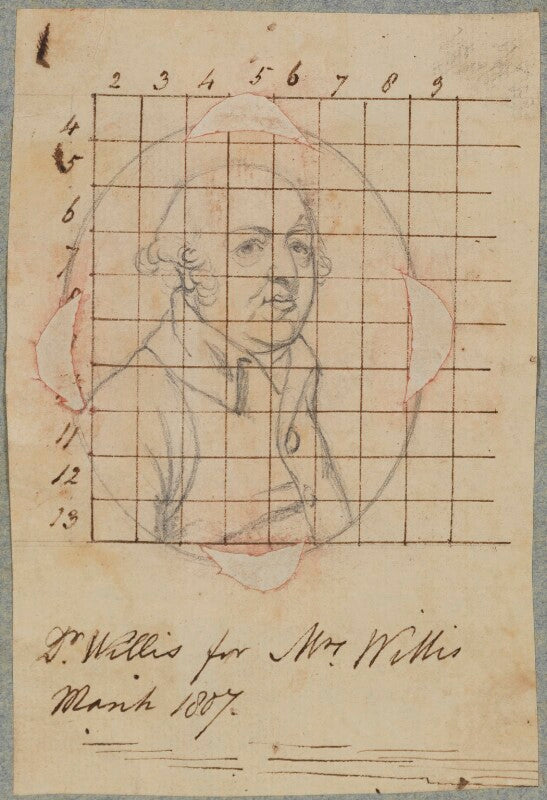 1
2 3 4 5 6 7 8 9
4
5
6
7
8
11
12
13
Dr. Willis for Mrs. Willis
March 1807.